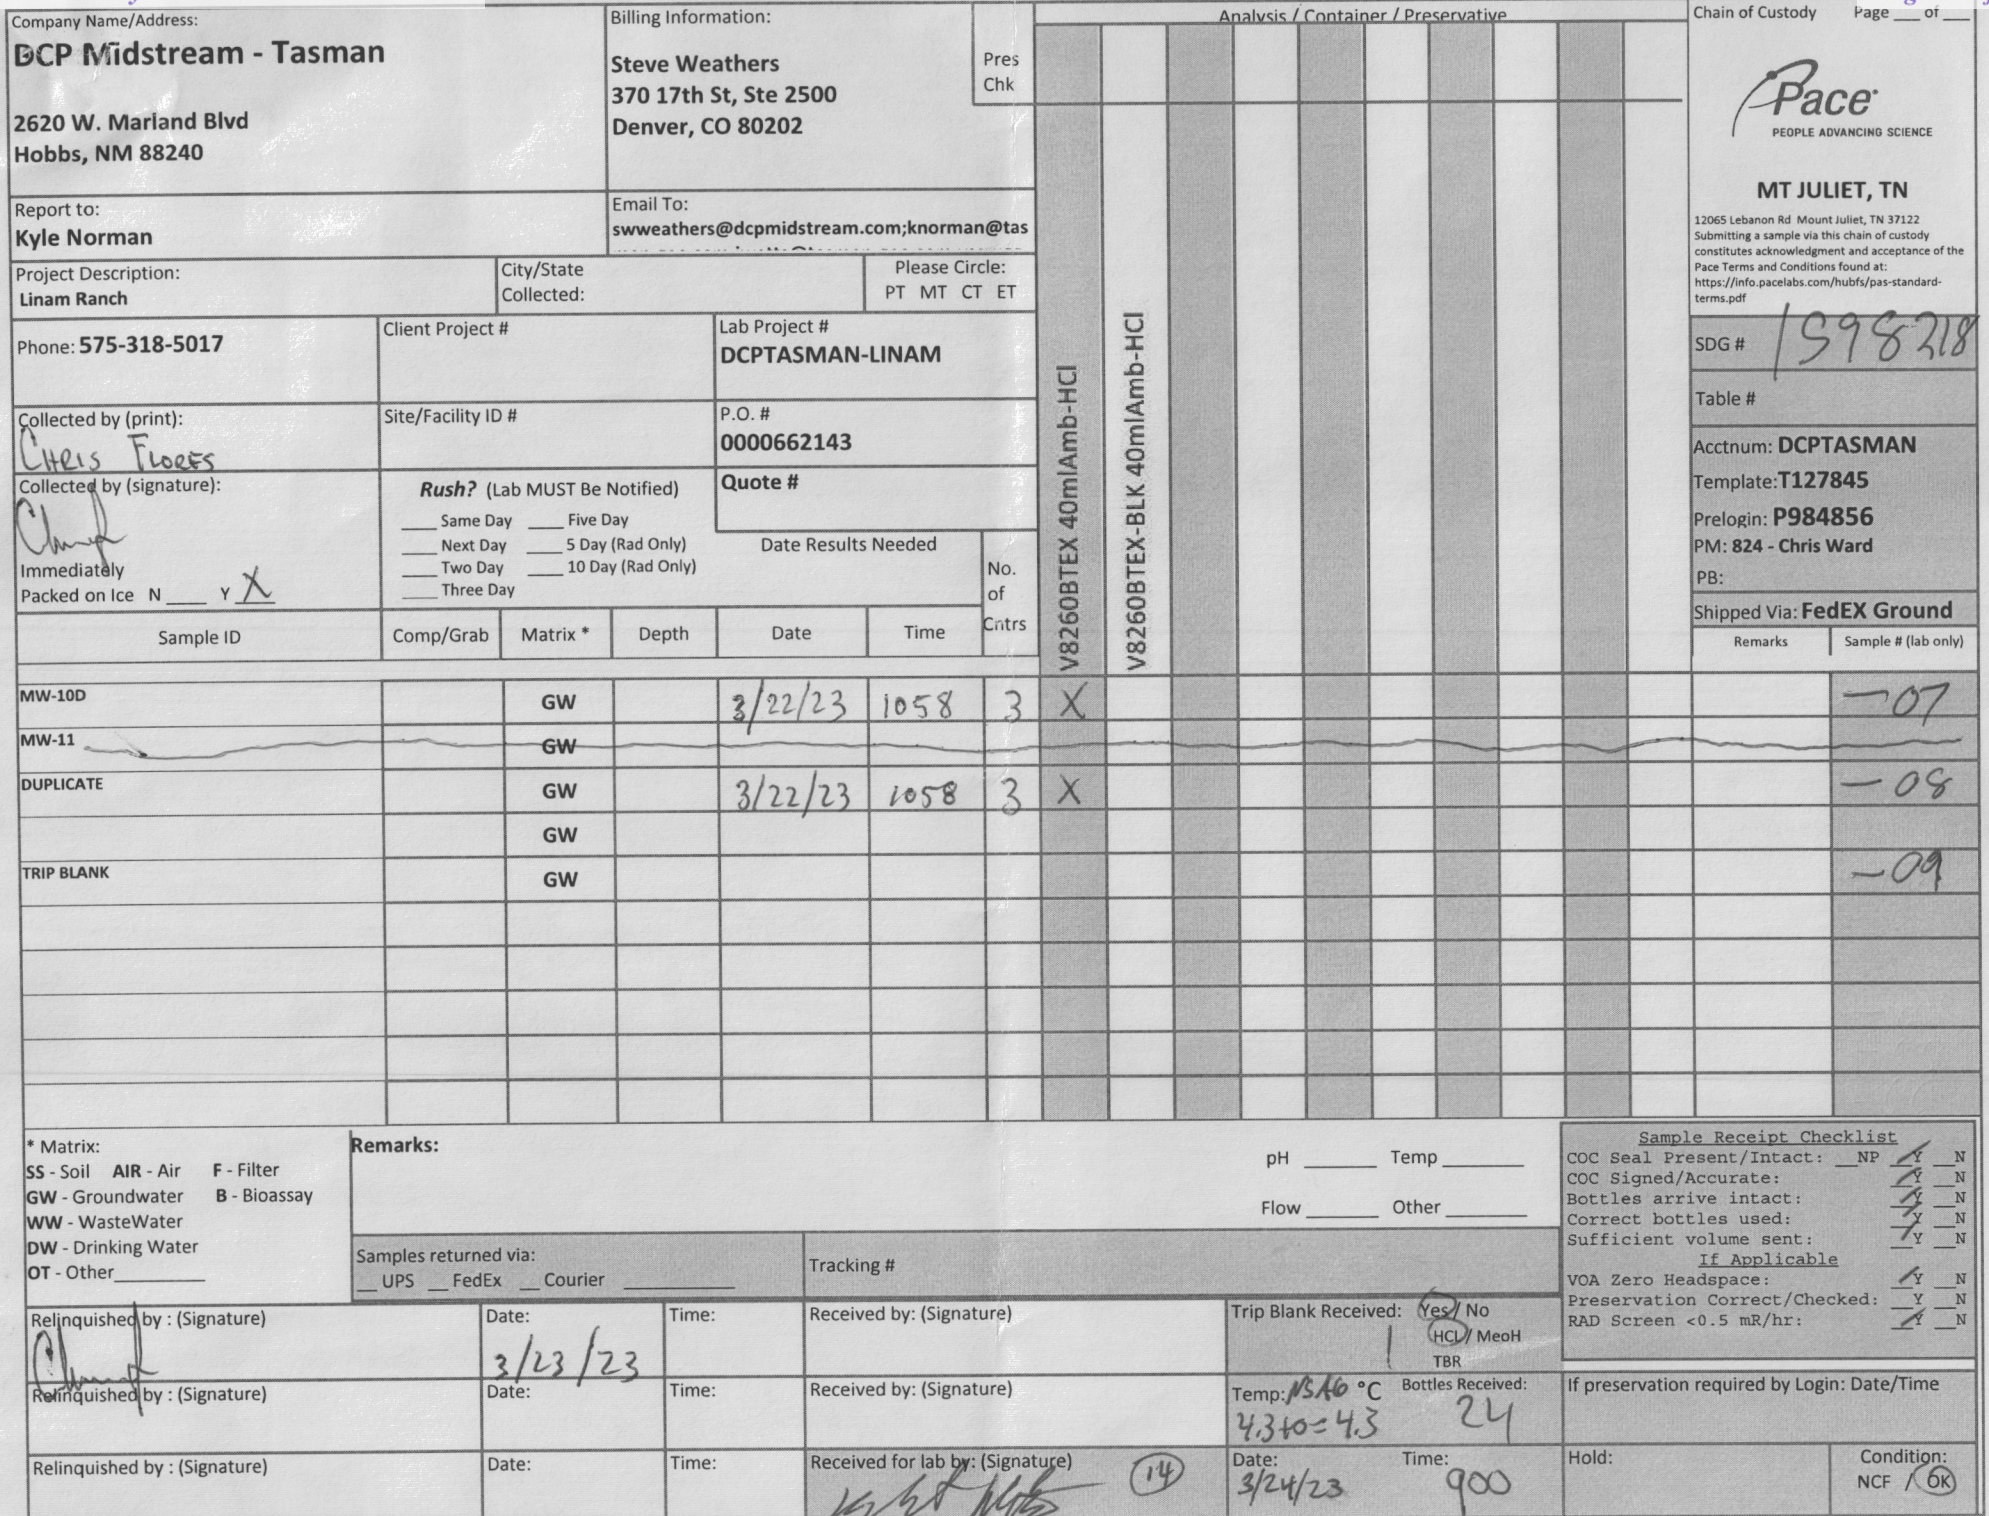 Company Name/Address:
DCP Midstream - Tasman
2620 W. Marland Blvd
Hobbs, NM 88240
Billing Information:
Steve Weathers
370 17th St, Ste 2500
Denver, CO 80202
Pres
Chk
Analysis / Container / Preservative
Chain of Custody Page ___ of ___
Pace
PEOPLE ADVANCING SCIENCE
MT JULIET, TN
12065 Lebanon Rd Mount Juliet, TN 37122
Submitting a sample via this chain of custody
constitutes acknowledgment and acceptance of the
Pace Terms and Conditions found at:
https://info.pacelabs.com/hubfs/pas-standard-
terms.pdf
Report to:
Kyle Norman
Email To:
swweathers@dcpmidstream.com;knorman@tas
Project Description:
Linam Ranch
City/State
Collected:
Please Circle:
PT MT CT ET
Phone: 575-318-5017
Client Project #
Lab Project #
DCPTASMAN-LINAM
SDG # 1598218
Table #
Collected by (print):
CHRIS FLORES
Site/Facility ID #
P.O. #
0000662143
Acctnum: DCPTASMAN
Template:T127845
Prelogin: P984856
PM: 824 - Chris Ward
PB:
Shipped Via: FedEX Ground
Collected by (signature):
Rush? (Lab MUST Be Notified)
___ Same Day ___ Five Day
___ Next Day ___ 5 Day (Rad Only)
___ Two Day ___ 10 Day (Rad Only)
___ Three Day
Quote #
Date Results Needed
No.
of
Cntrs
Immediately
Packed on Ice N ___ Y X
V8260BTEX 40mlAmb-HCl
V8260BTEX-BLK 40mlAmb-HCl
Sample ID Comp/Grab Matrix * Depth Date Time Remarks Sample # (lab only)
MW-10D GW 3/22/23 1058 3 X -07
MW-11 GW
DUPLICATE GW 3/22/23 1058 3 X -08
GW
TRIP BLANK GW -09
* Matrix:
SS - Soil AIR - Air F - Filter
GW - Groundwater B - Bioassay
WW - WasteWater
DW - Drinking Water
OT - Other___
Remarks:
pH ___ Temp ___
Flow ___ Other ___
Samples returned via:
__ UPS __ FedEx __ Courier ___
Tracking #
Sample Receipt Checklist
COC Seal Present/Intact: __NP __Y __N
COC Signed/Accurate: __Y __N
Bottles arrive intact: __Y __N
Correct bottles used: __Y __N
Sufficient volume sent: __Y __N
If Applicable
VOA Zero Headspace: __Y __N
Preservation Correct/Checked: __Y __N
RAD Screen <0.5 mR/hr: __Y __N
Relinquished by : (Signature)
Date:
3/23/23
Time:
Received by: (Signature)
Trip Blank Received: Yes / No
1 HCL / MeoH
TBR
Relinquished by : (Signature)
Date:
Time:
Received by: (Signature)
Temp: °C
4.3+0=4.3
Bottles Received:
24
If preservation required by Login: Date/Time
Relinquished by : (Signature)
Date:
Time:
Received for lab by: (Signature)
14
Date:
3/24/23
Time:
900
Hold:
Condition:
NCF / OK